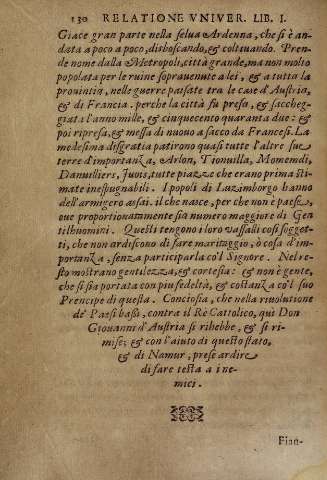 130 RELATIONE VNIVER. LIB. I.
Giace gran parte nella selua Ardenna, che si è an-
data a poco a poco, disboscando, & coltiuando. Pren-
de nome dalla Metropoli, città grande, ma non molto
popolata per le ruine soprauenute a lei, & a tutta la
prouintia, nelle guerre passate tra le case d'Austria,
& di Francia. perche la città fu presa, & saccheg-
giata: l'anno mille, & cinquecento quaranta due: &
poi ripresa, & messa di nuouo a sacco da Francesi. La
medesima disgratia patirono quasi tutte l'altre sue
terre d'importanza, Arlon, Tionuilla, Momendi,
Danuilliers, Iuois, tutte piazze che erano prima sti-
mate inespugnabili. I popoli di Luzimborgo hanno
dell'armigero assai. il che nasce, per che non è paese,
oue proportionatamente sia numero maggiore di Gen
tilhuomini. Questi tengono i loro vassalli così sogget-
ti, che non ardiscono di fare maritaggio, ò cosa d'im-
portanza, senza participarla co'l Signore. Nel re-
sto mostrano gentilezza, & cortesia: & non è gente,
che si sia portata con piu fedeltà, & costanza co'l suo
Prencipe di questa. Conciosia, che nella riuolutione
de' Paesi bassi, contra il Rè Cattolico, quì Don
Giouanni d'Austria si rihebbe, & si ri-
mise; & con l'aiuto di questo stato,
& di Namur, prese ardire
di fare testa a i ne-
mici.
Fian-